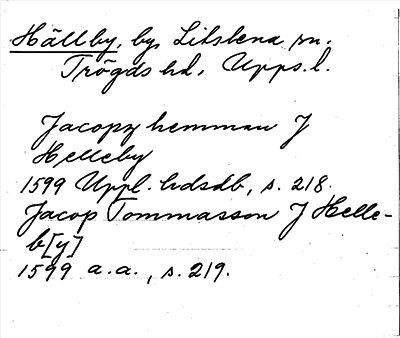 Hällby, by, Litslena sn.
Trögds hd, Upps. l.
Jacopz hemman J
Helleby
1599 Uppl. hdsdb, s. 218.
Jacop Tommasson J Helle-
b[y]
1599 a.a., s. 219.